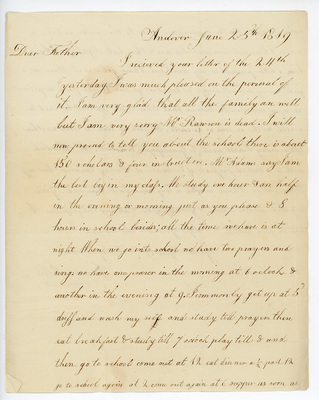 Andover June 25th 1819
Dear Father
I recieved your letter of the 24th
yesterday. I was much pleased on the perusal of
it. I am very glad that all the family are well
but I am very sorry Mr Rawson is dead. I will
now proceed to tell you about the school there is about
150 scholars & five instructors. Mr Adams says I am
the best boy in my class. We study one hour & an half
in the evening or morning just as you please & 8
hours in school besides; all the time we have is at
night. When we go into school we have two prayers and
sing; we have one prayer in the morning at 6 oclock &
another in the evening at 9. I commonly get up at 5
and wash my self and study till prayers then
eat breakfast & study till 7 & work play till 8 and
then go to school come out at 12 eat dinner at ½ past 12
go to school again at 2 come out again at 6 supper as soon as